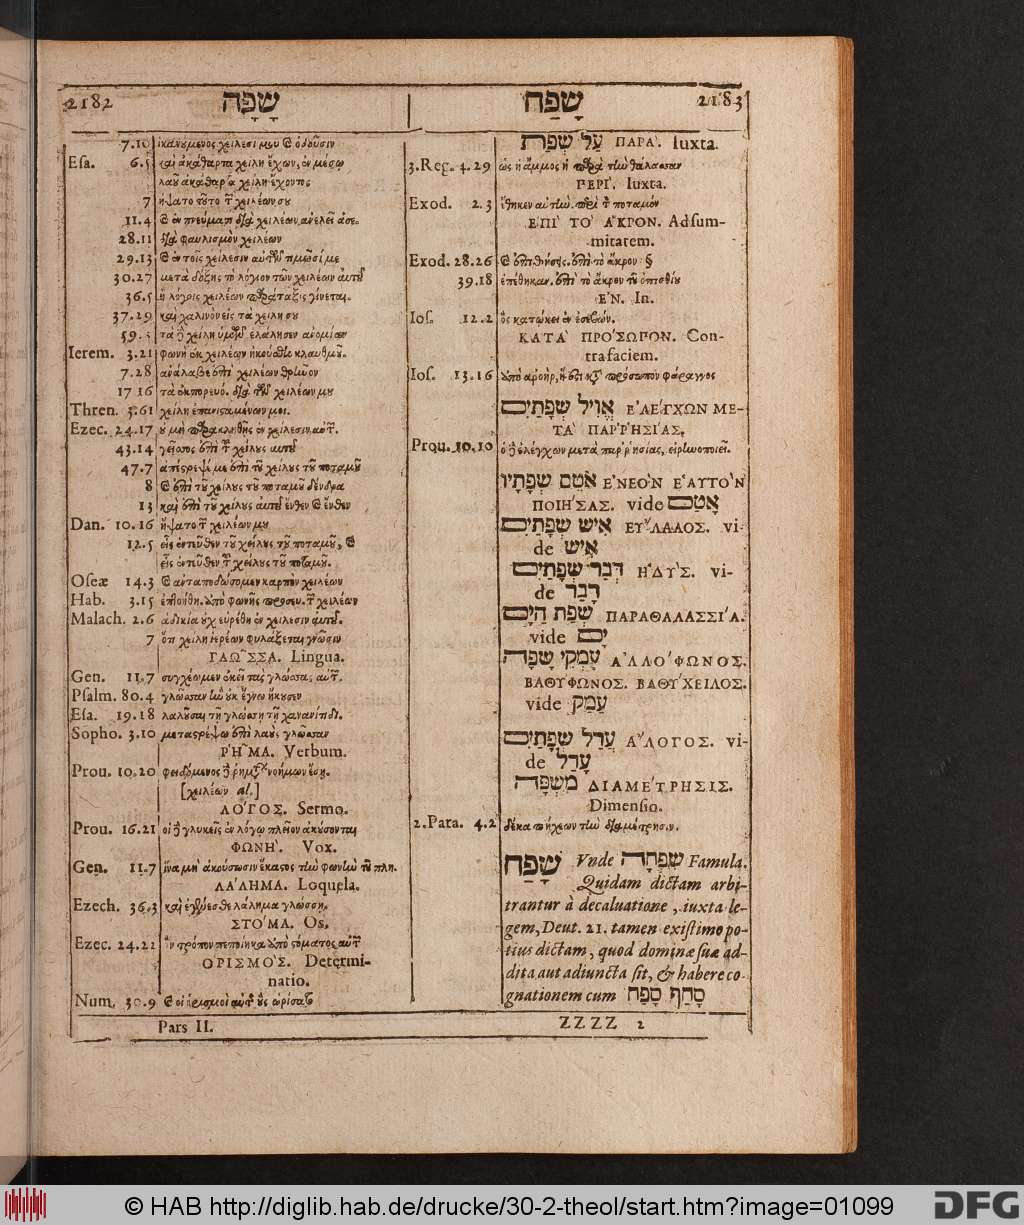 2182 שָׂפָה
7.10 ἱκανούμενος χείλεσί μου ὁδοῦσιν
Esa. 6.5 καὶ ἀκάθαρτα χείλη ἔχων, ἐν μέσῳ
λαοῦ ἀκάθαρτα χείλη ἔχοντος
7 ἥψατο τοῦτο τῶν χειλέων σου
11.4 ἐν πνεύματι διὰ χειλέων ἀνελεῖ ἀσε.
28.11 διὰ φαυλισμὸν χειλέων
29.13 ἐν τοῖς χείλεσιν αὐτῶν τιμῶσί με
30.27 μετὰ δόξης τὸ λόγιον τῶν χειλέων αὐτοῦ
36.5 ἢ λόγοις χειλέων παράταξις γίνεται.
37.29 καὶ χαλινὸν εἰς τὰ χείλη σου
59. τὰ δὲ χείλη ὑμῶν ἐλάλησεν ἀνομίαν
Ierem. 3.21 φωνὴ ἐκ χειλέων ἠκούσθη κλαυθμοῦ.
7.28 ἀνάλαβε ἐπὶ χειλέων θρῆνον
17 16 τὰ ἐκπορευό. διὰ τῶν χειλέων μου
Thren. 3.61 χείλη ἐπανισταμένων μοι.
Ezec. 24.17 οὐ μὴ παρακληθῇς ἐν χείλεσιν αὐτῶν.
43.14 γεῖσος ἐπὶ τὸ χεῖλος αὐτοῦ
47.7 ἀπέστρεψέ με ἐπὶ τοῦ χείλους τοῦ ποταμοῦ
8 ἐπὶ τοῦ χείλους τοῦ ποταμοῦ δένδρα
13 καὶ ἐπὶ τοῦ χείλους αὐτοῦ ἔνθεν ἔνθεν
Dan. 10.16 ἥψατο τῶν χειλέων μου
12.5 εἷς ἐντεῦθεν τοῦ χείλους τοῦ ποταμοῦ,
εἷς ἐντεῦθεν τοῦ χείλους τοῦ ποταμοῦ.
Oseæ 14.3 ἀνταποδώσομεν καρπὸν χειλέων
Hab. 3.15 ἐπτοήθη. ἀπὸ φωνῆς προσευ. τῶν χειλέων
Malach. 2.6 ἀδικία οὐχ εὑρέθη ἐν χείλεσιν αὐτοῦ.
7 ὅτι χείλη ἱερέων φυλάξεται γνῶσιν
ΓΛΩ͂ΣΣΑ. Lingua.
Gen. 11.7 συγχέωμεν ἐκεῖ τὰς γλώσσας αὐτῶν.
Psalm. 80.4 γλῶσσαν ἣν οὐκ ἔγνω ἤκουσεν
Esa. 19.18 λαλοῦσαι τῇ γλώσσῃ τῇ χανανίτιδι.
Sopho. 3.10 μεταστρέψω ἐπὶ λαοὺς γλῶσσαν
ῬΗ͂ΜΑ. Verbum.
Prou. 10.20 φειδόμενος δὲ ῥημάτων νοήμων ἔσῃ.
[χειλέων al.]
ΛΟ´ΓΟΣ. Sermo.
Prou. 16.21 οἱ δὲ γλυκεῖς ἐν λόγῳ πλεῖον ἀκούσονται
ΦΩΝΗ´. Vox.
Gen. 11.7 ἵνα μὴ ἀκούσωσιν ἕκαστος τὴν φωνὴν τοῦ πλη.
ΛΑ´ΛΗΜΑ. Loquela.
Ezech. 36.3 καὶ ἐγένεσθε λάλημα γλώσσῃ.
ΣΤΟ´ΜΑ. Os.
Ezec. 24.22 ὃν τρόπον πεποίηκα ἀπὸ στόματος αὐτῶν
ΟΡΙΣΜΟ´Σ. Determi-
natio.
Num. 30.9 οἱ ὁρισμοὶ αὐτῆς οὓς ὡρίσατο
Pars II.
שָׂפַח 2183
עַל שְׂפַת ΠΑΡΑ´. Iuxta.
3.Reg. 4.29 ὡς ἡ ἄμμος ἡ παρὰ τὴν θάλασσαν
ΠΕΡΙ´. Iuxta.
Exod. 2.3 ἔθηκεν αὐτὴν παρὰ τὸν ποταμόν
ΕΠΙ` ΤΟ` Α῎ΚΡΟΝ. Ad sum-
mitatem.
Exod. 28.26 ἐπιθήσεις. ἐπὶ τὸ ἄκρον §
39.18 ἐπέθηκαν. ἐπὶ τὸ ἄκρον τοῦ ὀπισθίου
Ε᾽Ν. In.
Ios. 12.2 ὃς κατῴκει ἐν ἐσεβών.
ΚΑΤΑ` ΠΡΟ´ΣΩΠΟΝ. Con-
tra faciem.
Ios. 13.16 ἀπὸ ἀροήρ, ἥ ἐστι κατὰ πρόσωπον φάραγγος
אֱוִיל שְׂפָתַיִם Ε᾽ΛΕ´ΓΧΩΝ ΜΕ-
ΤΑ` ΠΑΡΡΗΣΙ´ΑΣ.
Prou. 10.10 ὁ δὲ ἐλέγχων μετὰ παρρησίας, εἰρηνοποιεῖ.
אֹטֵם שְׂפָתָיו Ε᾽ΝΕΟ`Ν Ε῾ΑΥΤΟ`Ν
ΠΟΙΗ´ΣΑΣ. vide אָטַם
אִישׁ שְׂפָתַיִם ΕΥ῎ΛΑΛΟΣ. vi-
de אִישׁ
דְּבַר שְׂפָתַיִם Η῾ΔΥ´Σ. vi-
de דָּבַר
שְׂפַת הַיָּם ΠΑΡΑΘΑΛΑΣΣΙ´Α.
vide יָם
עִמְקֵי שָׂפָה Α᾽ΛΛΟ´ΦΩΝΟΣ.
ΒΑΘΥ´ΦΩΝΟΣ. ΒΑΘΥ´ΧΕΙΛΟΣ.
vide עָמַק
עֲרַל שְׂפָתַיִם Α῎ΛΟΓΟΣ. vi-
de עָרַל
מִשְׂפָּה ΔΙΑΜΕ´ΤΡΗΣΙΣ.
Dimensio.
2.Para. 4.2 δέκα πήχεων τὴν διαμέτρησιν.
שָׂפַח Vnde שִׁפְחָה Famula.
Quidam dictam arbi-
trantur à decaluatione, iuxta le-
gem, Deut. 21. tamen existimo po-
tius dictam, quod dominæ suæ ad-
dita aut adiuncta sit, & habere co
gnationem cum סָחַף סָפַח
ZZZZ 2
© HAB http://diglib.hab.de/drucke/30-2-theol/start.htm?image=01099
DFG